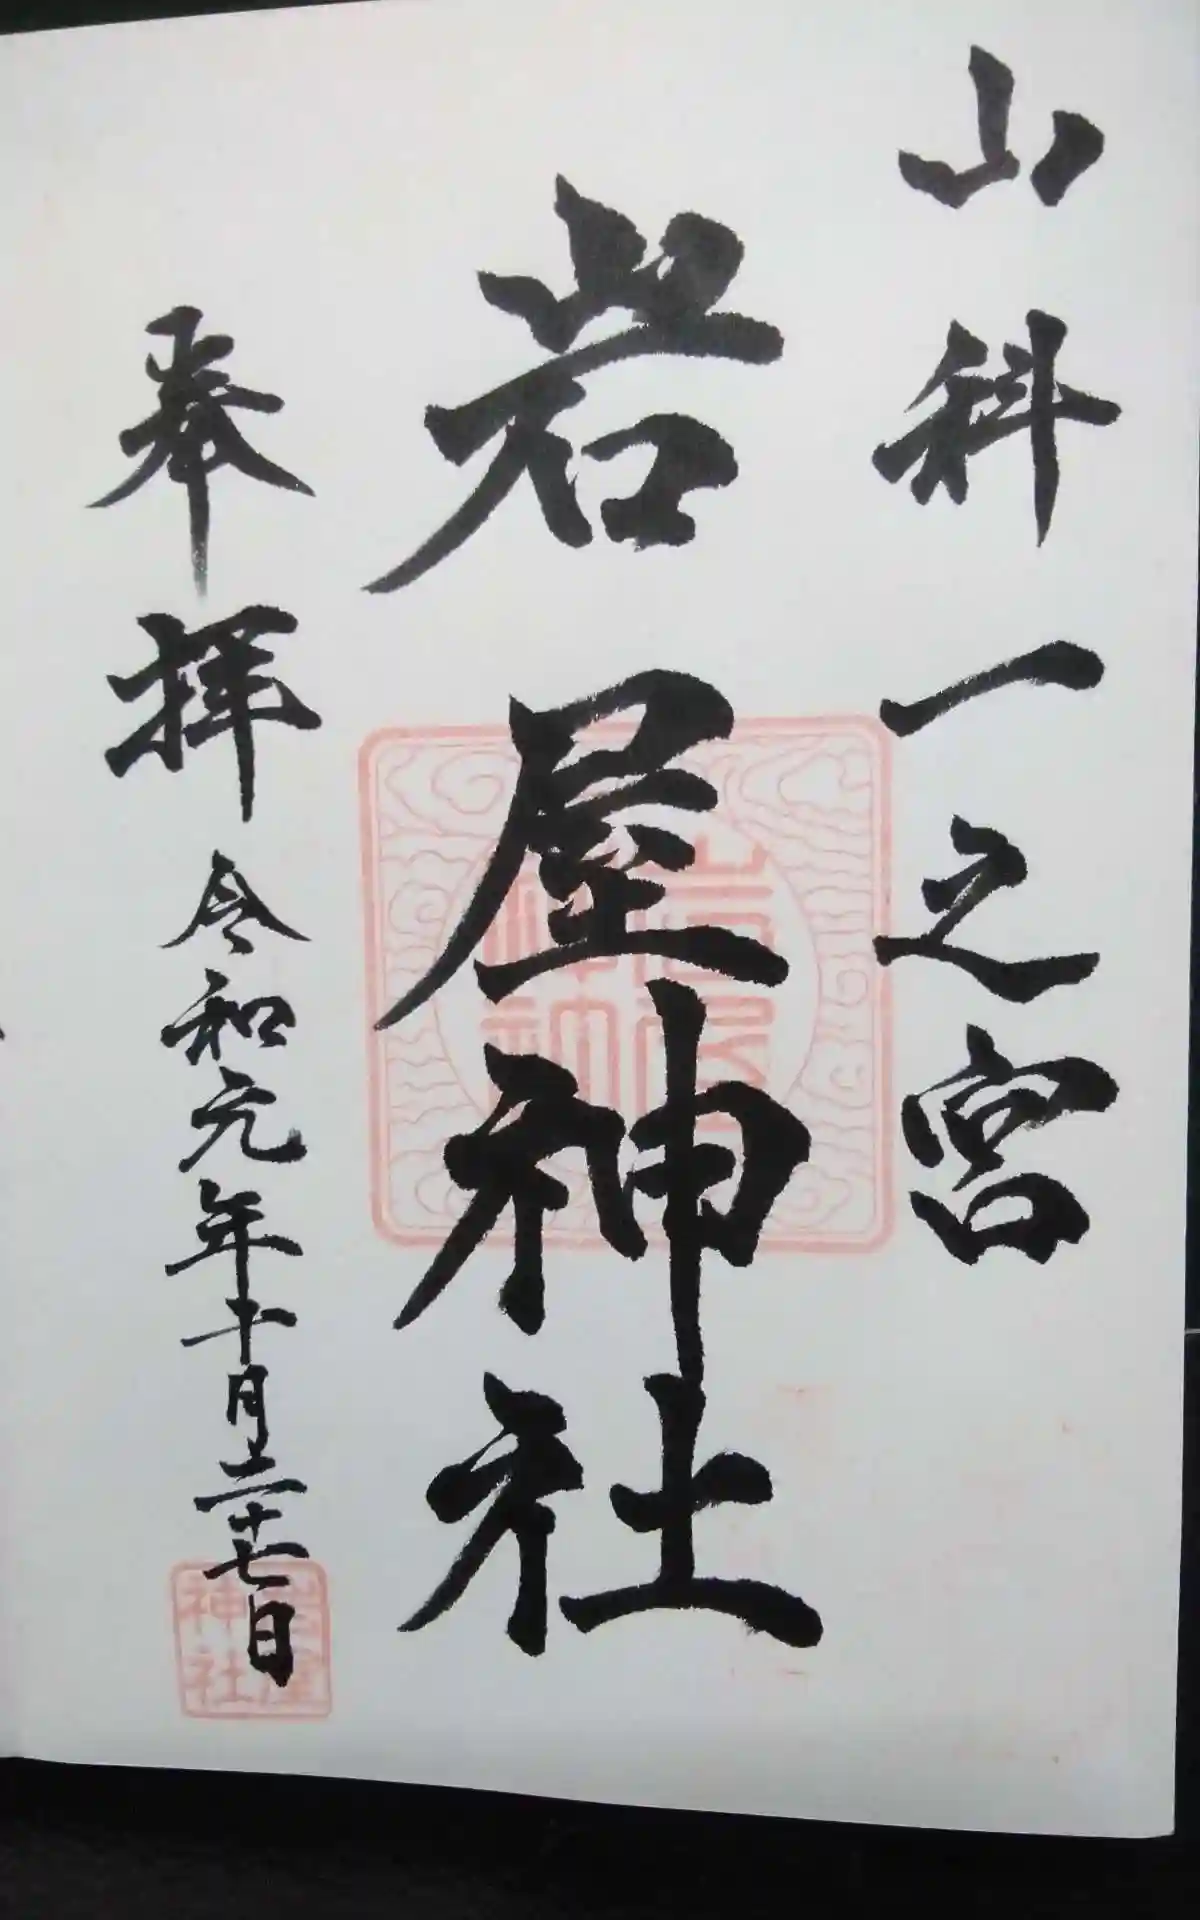 山科一之宮
岩屋神社
奉拝
令和元年十月二十七日
岩屋神社